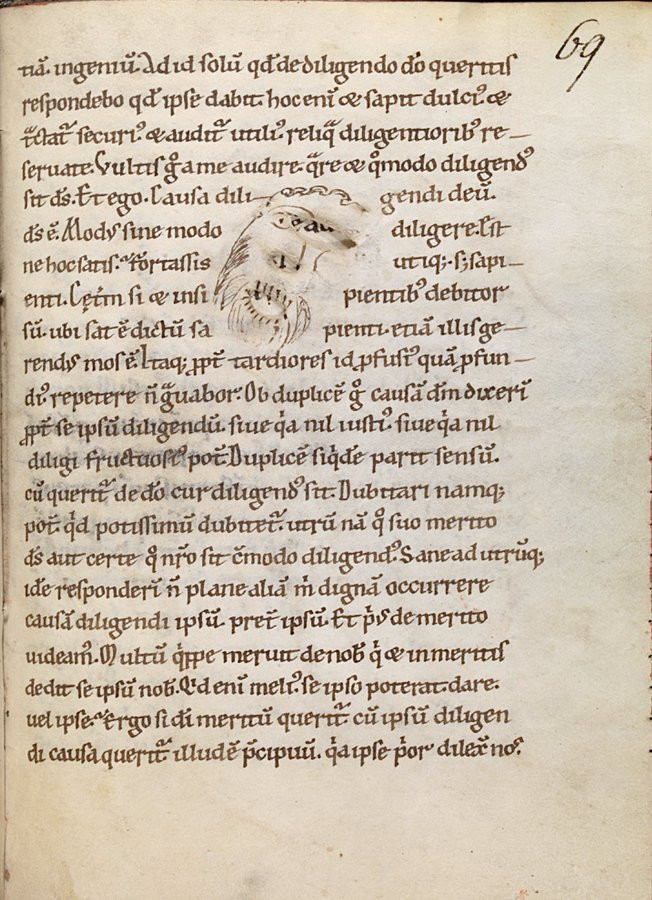 69
tiā. ingeniū. Ad id solū qd̄ de diligendo dō queritis
respondebo qd̄ ipse dabit. hoc enī & sapit dulciꝰ. &
tͣctatᷣ securiꝰ. & auditᷣ utiliꝰ. reliqͣ diligentioribꝰ re—
seruate. Vultis gͦ a me audire. qͣre & qͦmodo diligendꝰ
sit dꝰs. Et ego. Causa dili— gendi deū.
dꝰs ē. Modꝰ sine modo diligere. Est
ne hoc satis. Fortassis utiqꝫ. sꝫ sapi—
enti. Cet̄m si & insi pientibꝰ debitor
sū. ubi sat ē dictū sa pienti. etiā illis ge—
rendꝰ mos ē. Itaqꝫ ꝓpt̄ tardiores id ꝓfusiꝰ quā ꝓfun—
diꝰ repetere n̄ gͣuabor. Ob duplicē gͦ causā dm̄ dixerī
ꝓpt̄ se ipsū diligendū. siue qͥa nil iustiꝰ. siue qͥa nil
diligi fructuosiꝰ pot̄. Duplicē siqͥdē parit sensū.
cū queritᷣ de dō cur diligendꝰ sit. Dubitari namqꝫ
pot̄. qͥd potissimū dubitetᷣ. utrū nā qͦ suo merito
dꝰs aut certe qͦ nr̄o sit cōmodo diligendꝰ. Sane ad utrūqꝫ
idē responderī n̄ plane aliā m̄ dignā occurrere
causā diligendi ipsū. pret̄ ipsū. Et pͥꝰ de merito
uideamꝰ. Multū qͥppe meruit de nob̄ qͥ & inmeritis
dedit se ipsū nob̄. Qͥd enī meliꝰ se ipso poterat dare.
uel ipse. Ergo si dī meritū queritᷣ cū ipsū diligen
di causa queritᷣ illud ē pͥcipuū. qͥa ipse pͥor dilex̄ nos.